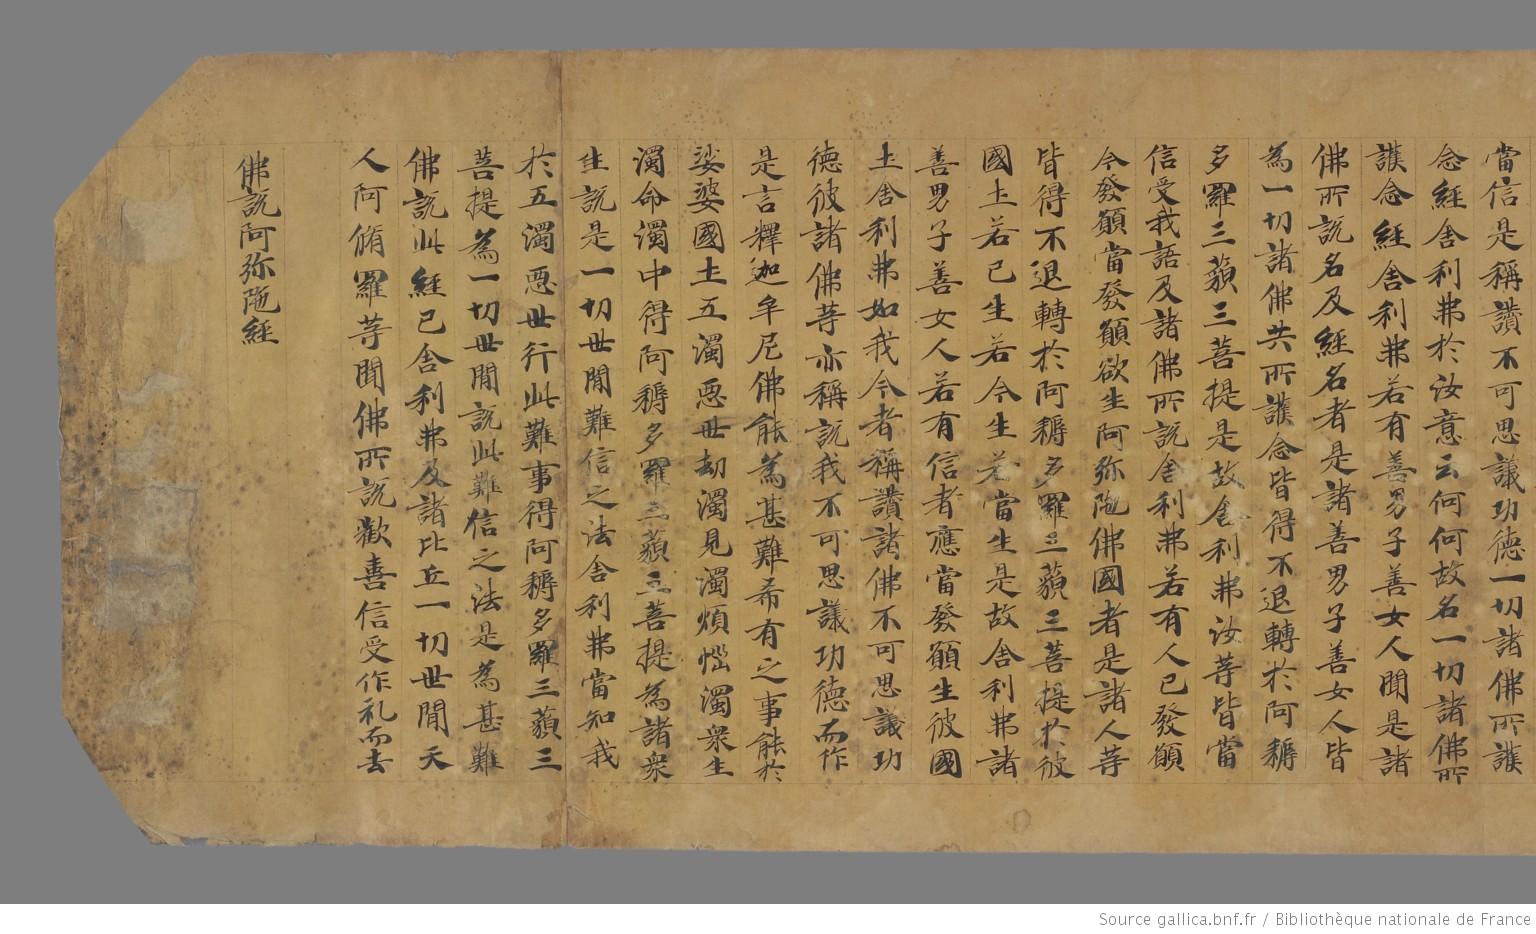 當信是稱讚不可思議功德一切諸佛所護
念經舍利弗於汝意云何何故名一切諸佛所
護念經舍利弗若有善男子善女人聞是諸
佛所說名及經名者是諸善男子善女人皆
為一切諸佛共所護念皆得不退轉於阿耨
多羅三藐三菩提是故舍利弗汝等皆當
信受我語及諸佛所說舍利弗若有人已發願
今發願當發願欲生阿弥陁佛國者是諸人等
皆得不退轉於阿耨多羅三藐三菩提於彼
國土若已生若今生若當生是故舍利弗諸
善男子善女人若有信者應當發願生彼國
土舍利弗如我今者稱讚諸佛不可思議功
德彼諸佛等亦稱說我不可思議功德而作
是言釋迦牟尼佛能為甚難希有之事能於
娑婆國土五濁惡世劫濁見濁煩惱濁衆生
濁命濁中得阿耨多羅三藐三菩提為諸衆
生說是一切世間難信之法舍利弗當知我
於五濁惡世行此難事得阿耨多羅三藐三
菩提為一切世間說此難信之法是為甚難
佛說此經已舍利弗及諸比丘一切世間天
人阿脩羅等聞佛所說歡喜信受作礼而去
佛說阿弥陁經
Source gallica.bnf.fr / Bibliothèque nationale de France